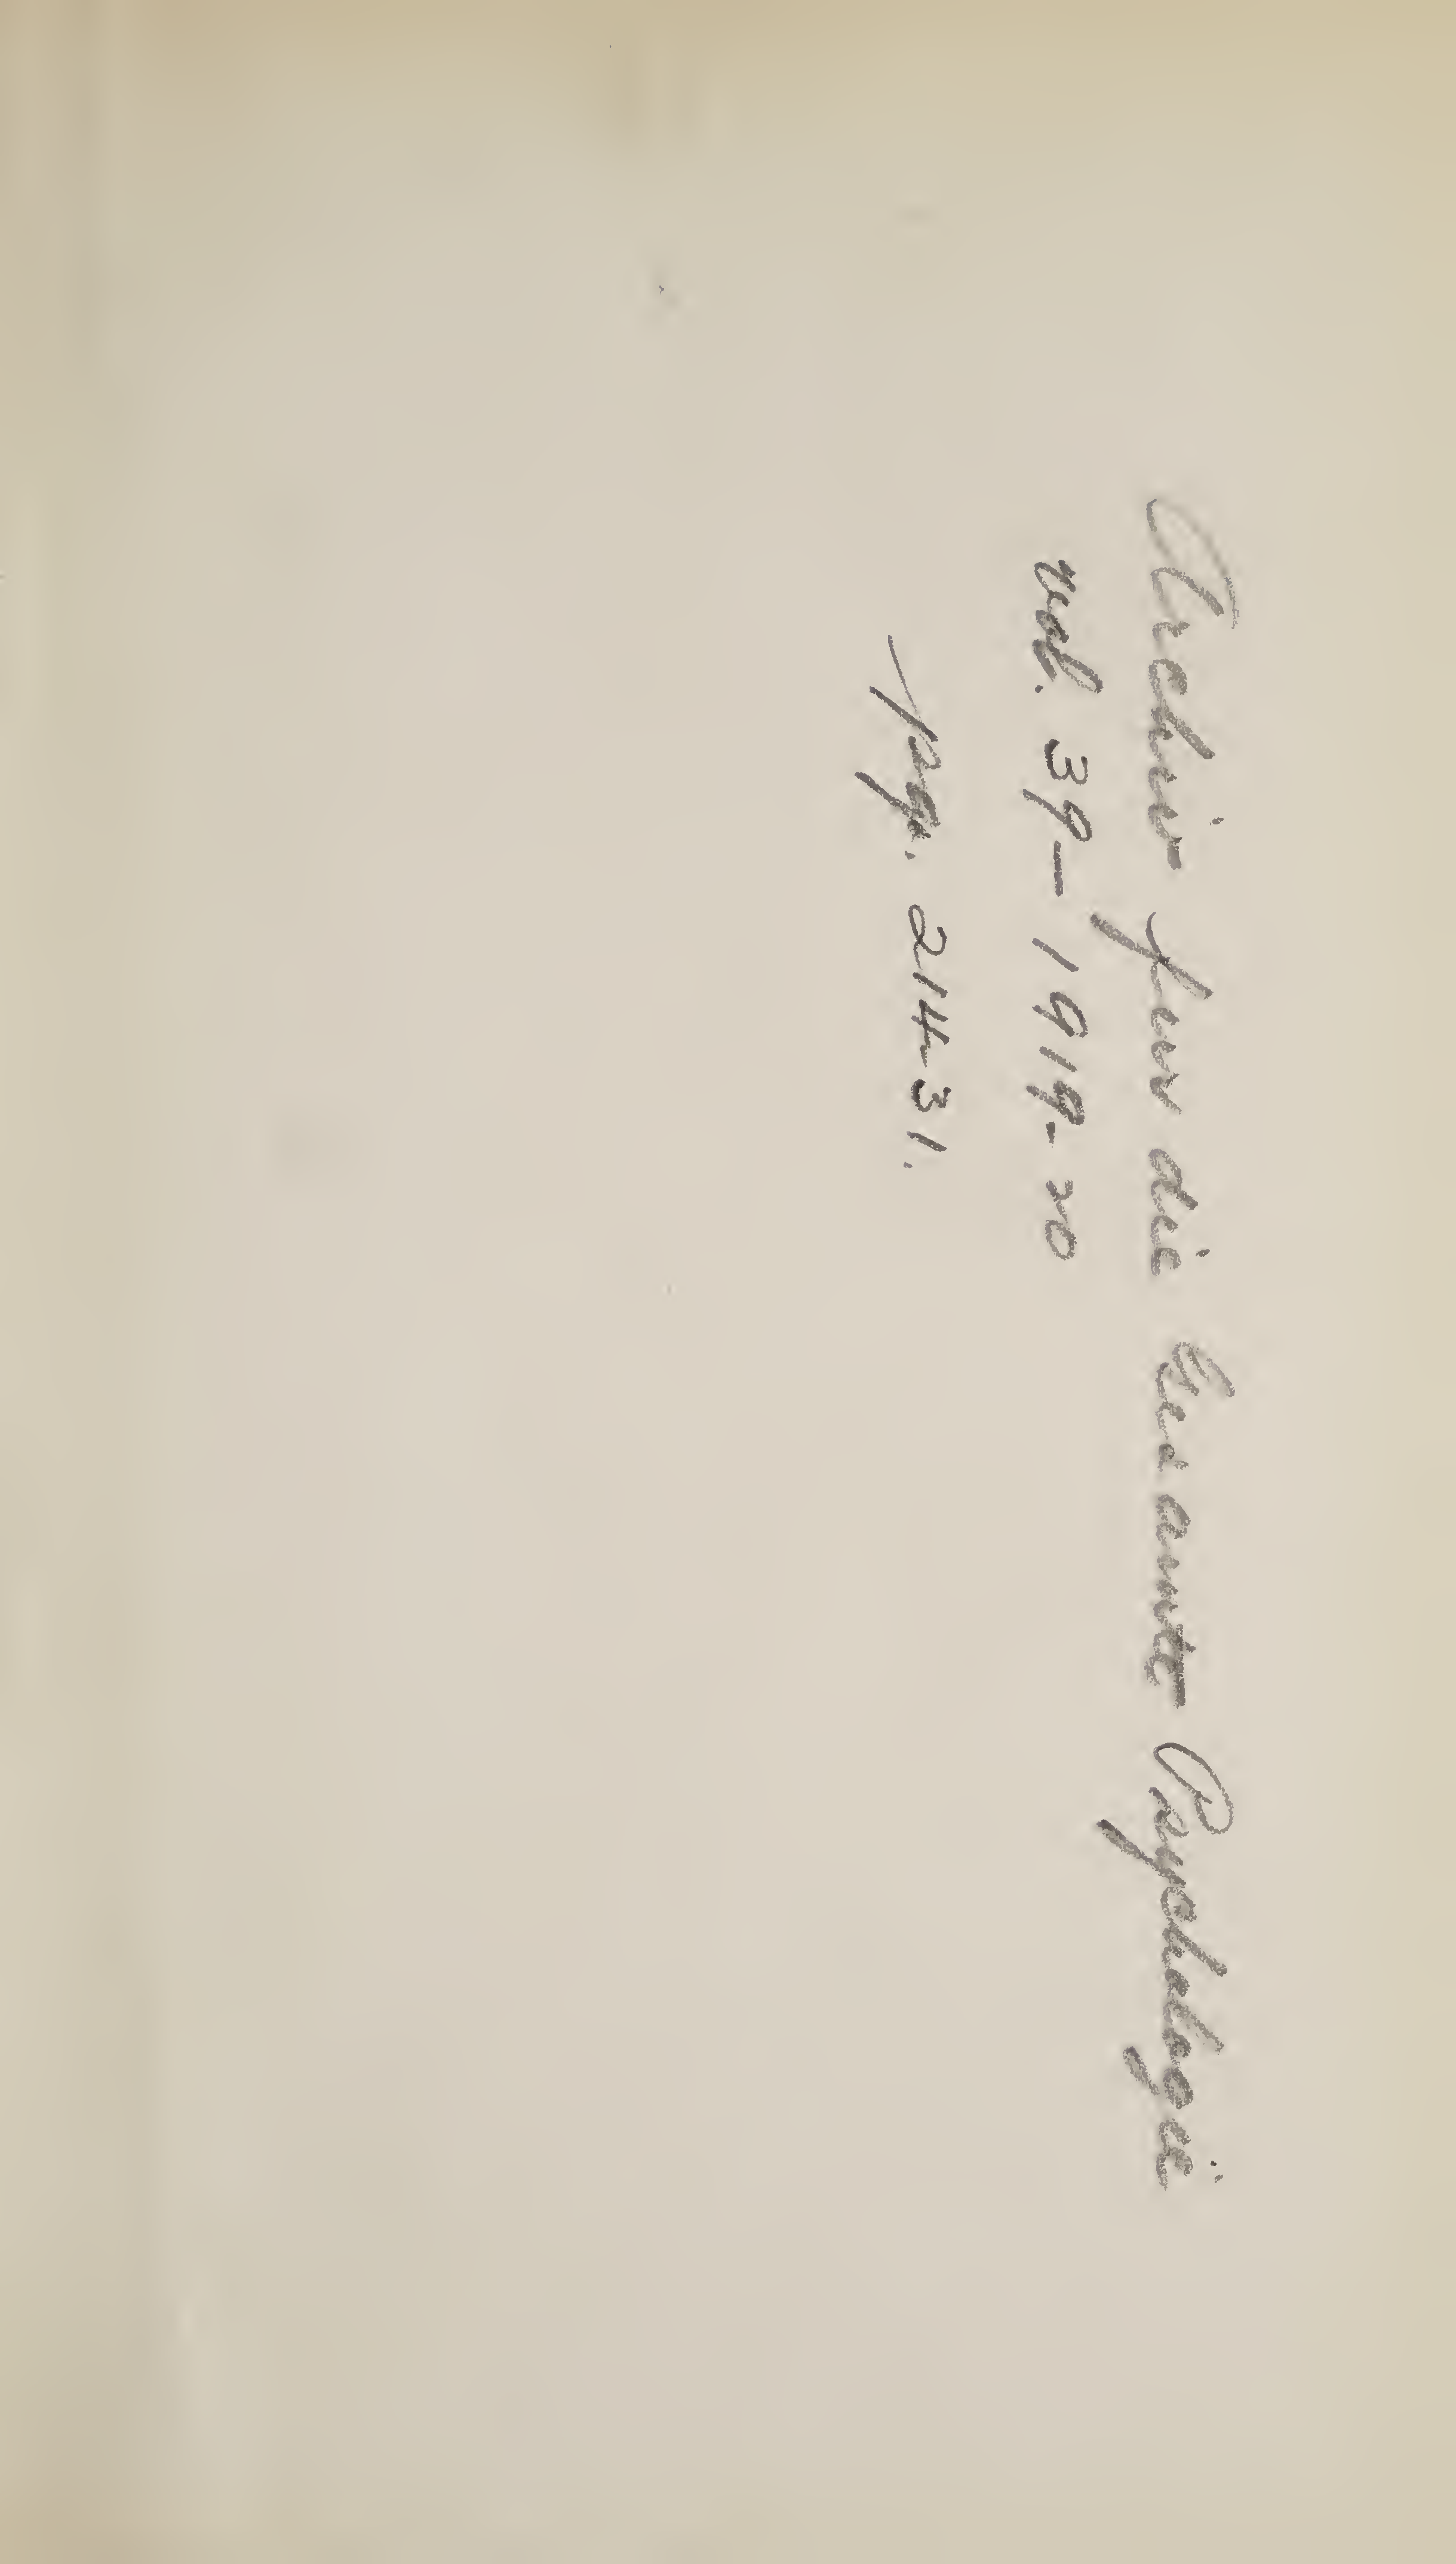 Archiv fur die Gesamte Psychologie
vol. 39 - 1919-20
pgs. 214-31.